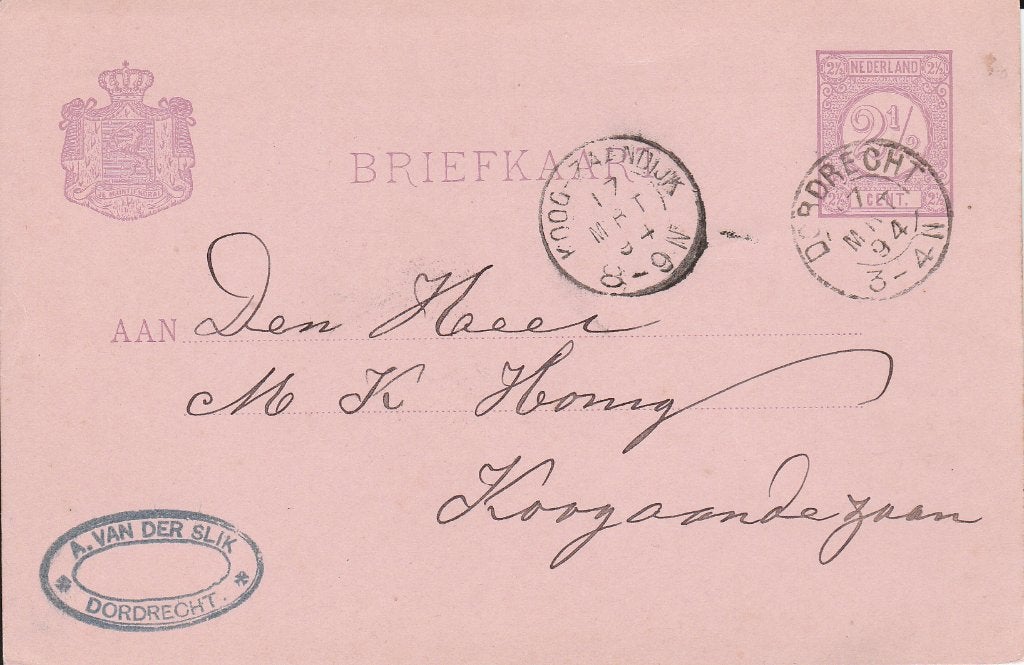 2½ NEDERLAND 2½
2½
2½ CENT. 2½
BRIEFKAAR
KOOG-ZAANDIJK
17
8-9N
DORDRECHT
17
94
3-4N
AAN Den Heer
M K Honig
Koogaandezaan
A. VAN DER SLIK
DORDRECHT.